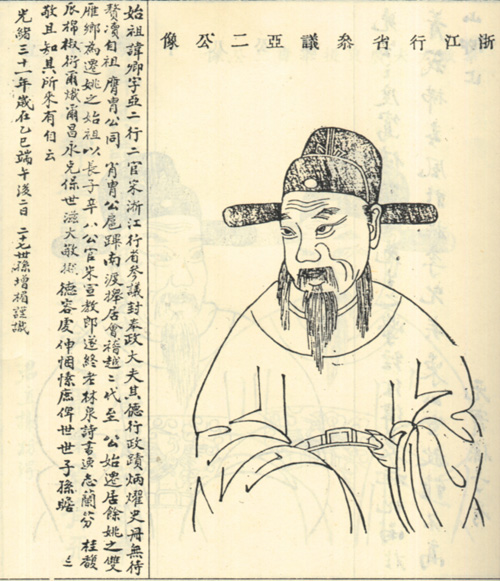 浙江行省叅議亞二公像
始祖諱卿字亞二行二官宋浙江行省參議封奉政大夫其德行政蹟炳燿史冊無待
贅凟自祖膺胄公同 宵胄公扈蹕南渡擇居會稽越二代至 公始遷居餘姚之雙
雁鄉為遷姚之始祖以長子辛八公官宋宣教郎遂終老林泉詩書逸志蘭芬 桂馥
棉椒衍爾熾爾昌永克保世滋大敬德容虔伸悃愫庶俾世世子孫瞻
敬且知其所來有自云
光緒三十一年歲在乙巳端午後二日 二十七世孫增楣謹識